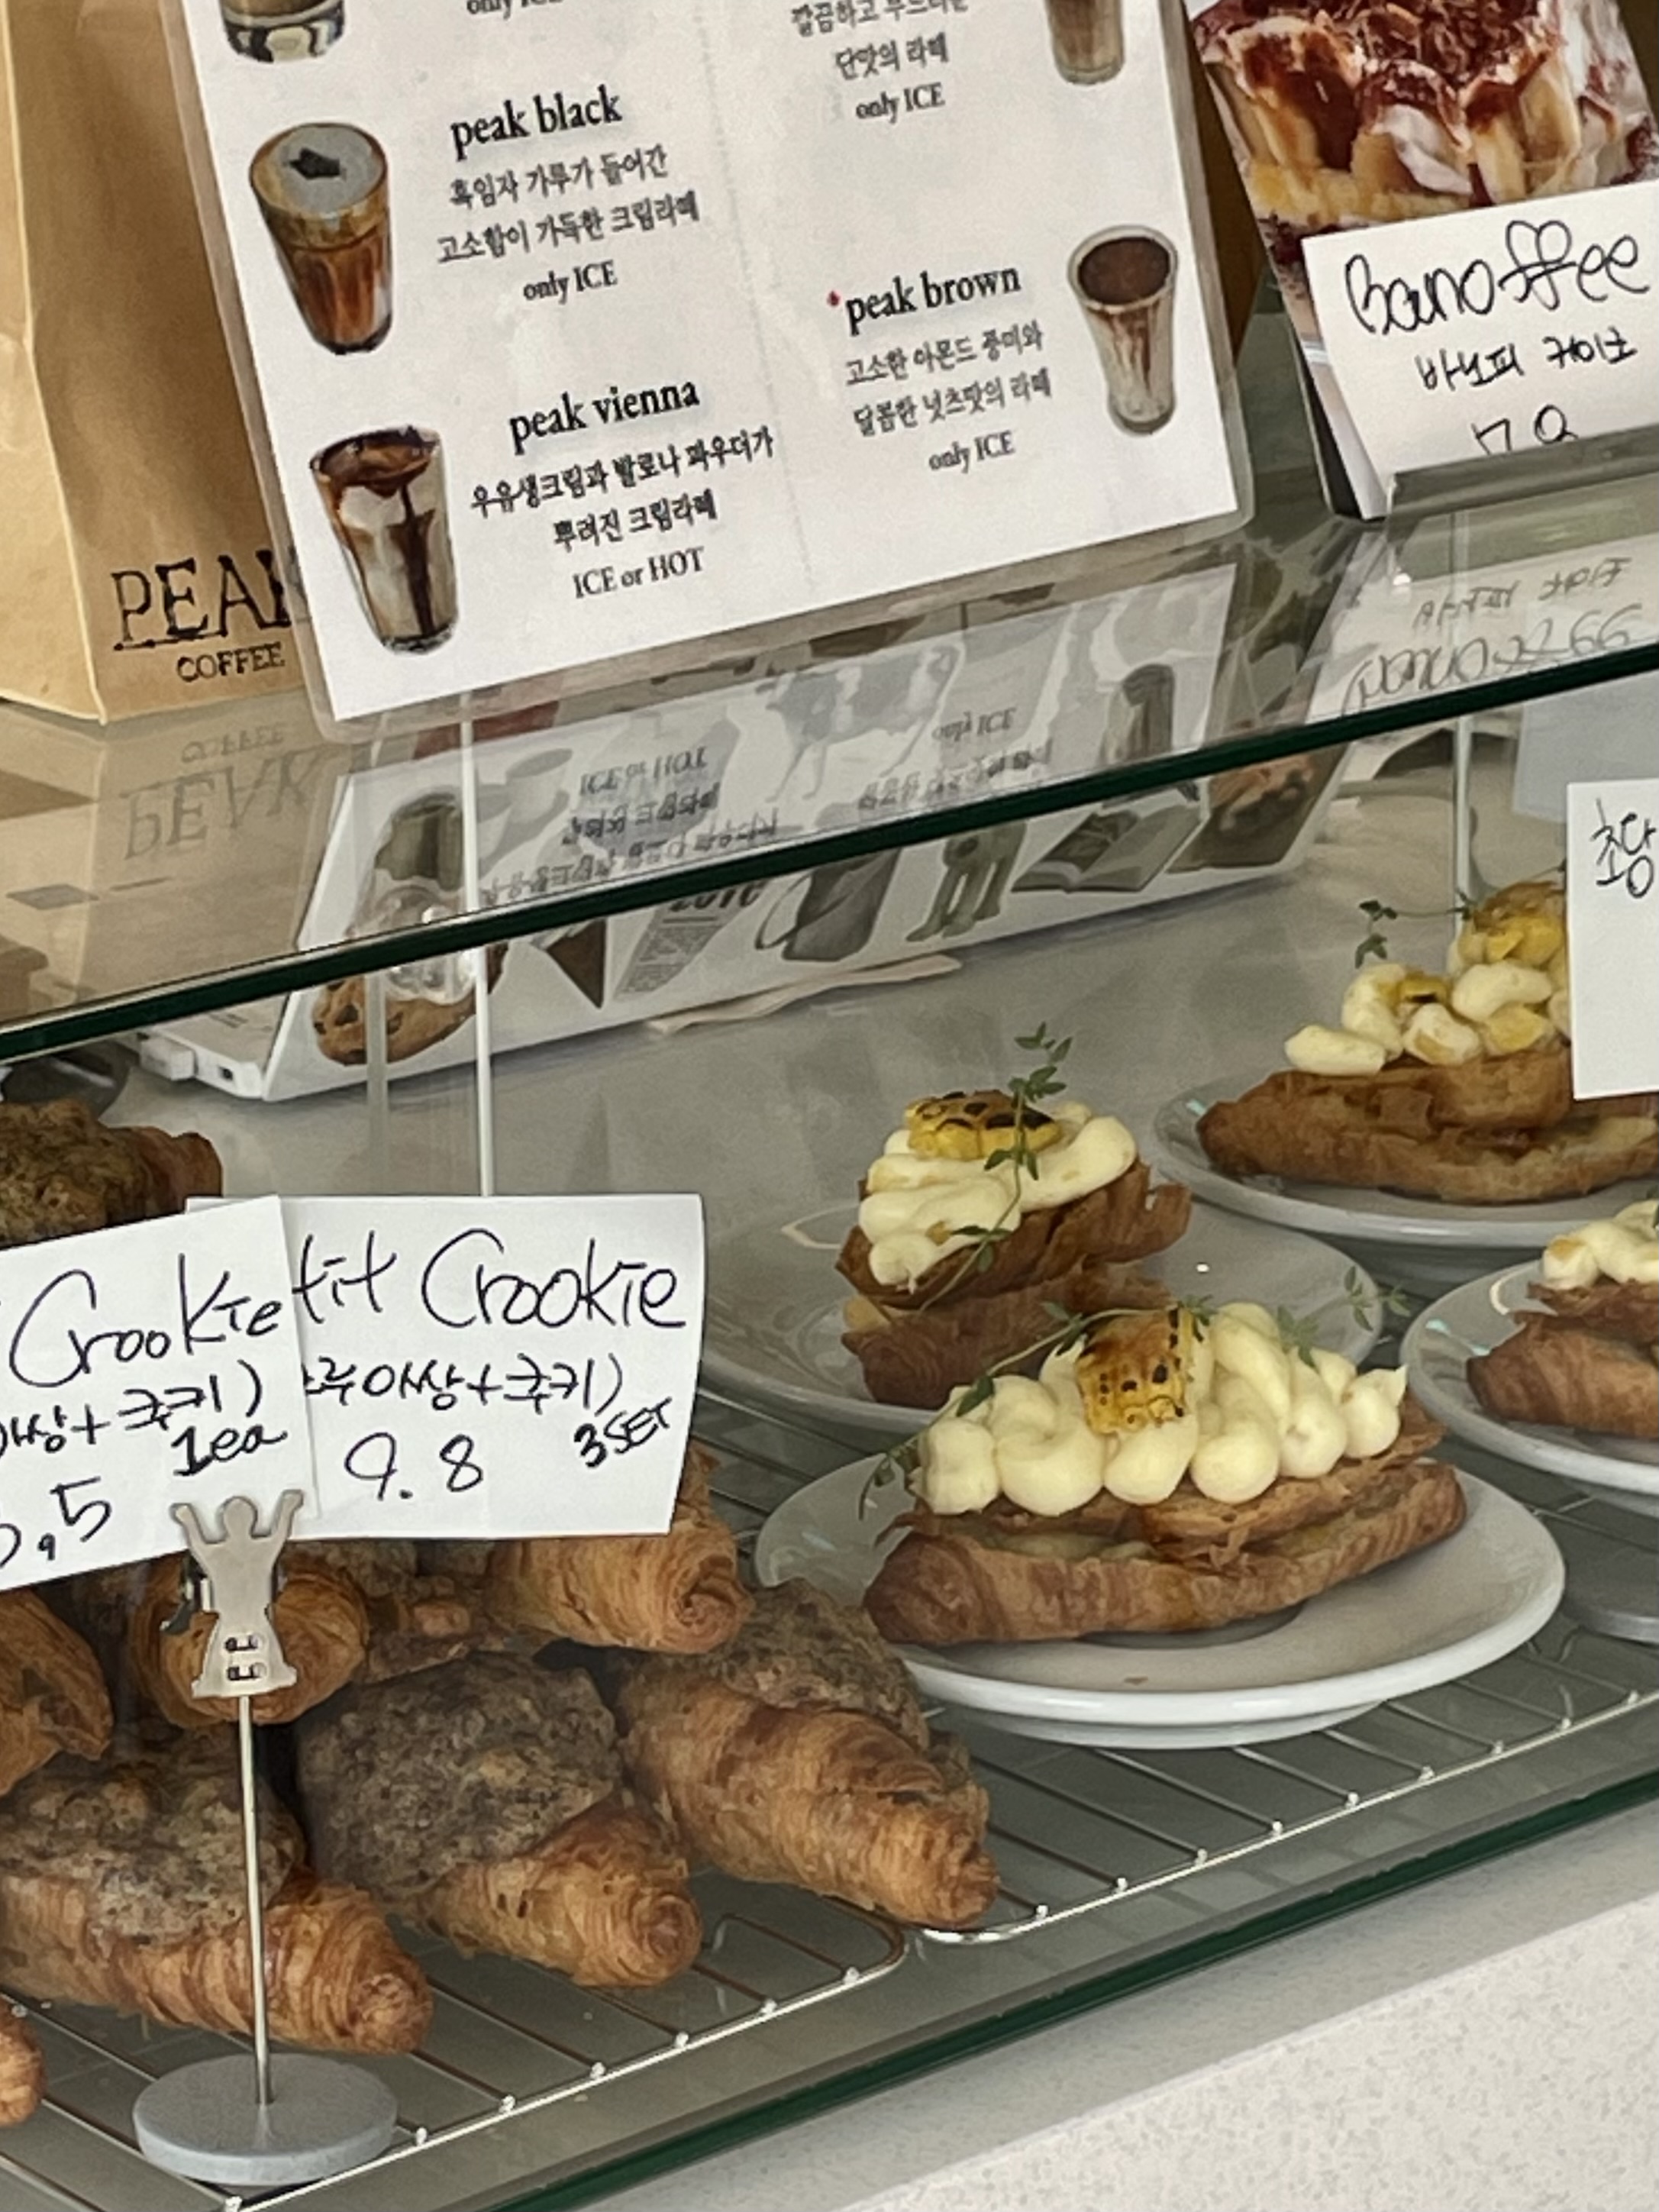 only ICE
peak black
흑임자 가루가 들어간
고소함이 가득한 크림라떼
only ICE
peak vienna
우유생크림과 발로나 파우더가
뿌려진 크림라떼
ICE or HOT
깔끔하고 부드러운
단맛의 라떼
only ICE
peak brown
고소한 아몬드 풍미와
달콤한 넛츠맛의 라떼
only ICE
Banoffee
바노피 케이크
PEAK
COFFEE
초당
Crookie
쿠키)
1ea
,5
tit Crookie
루아상+쿠키)
3SET
9.8